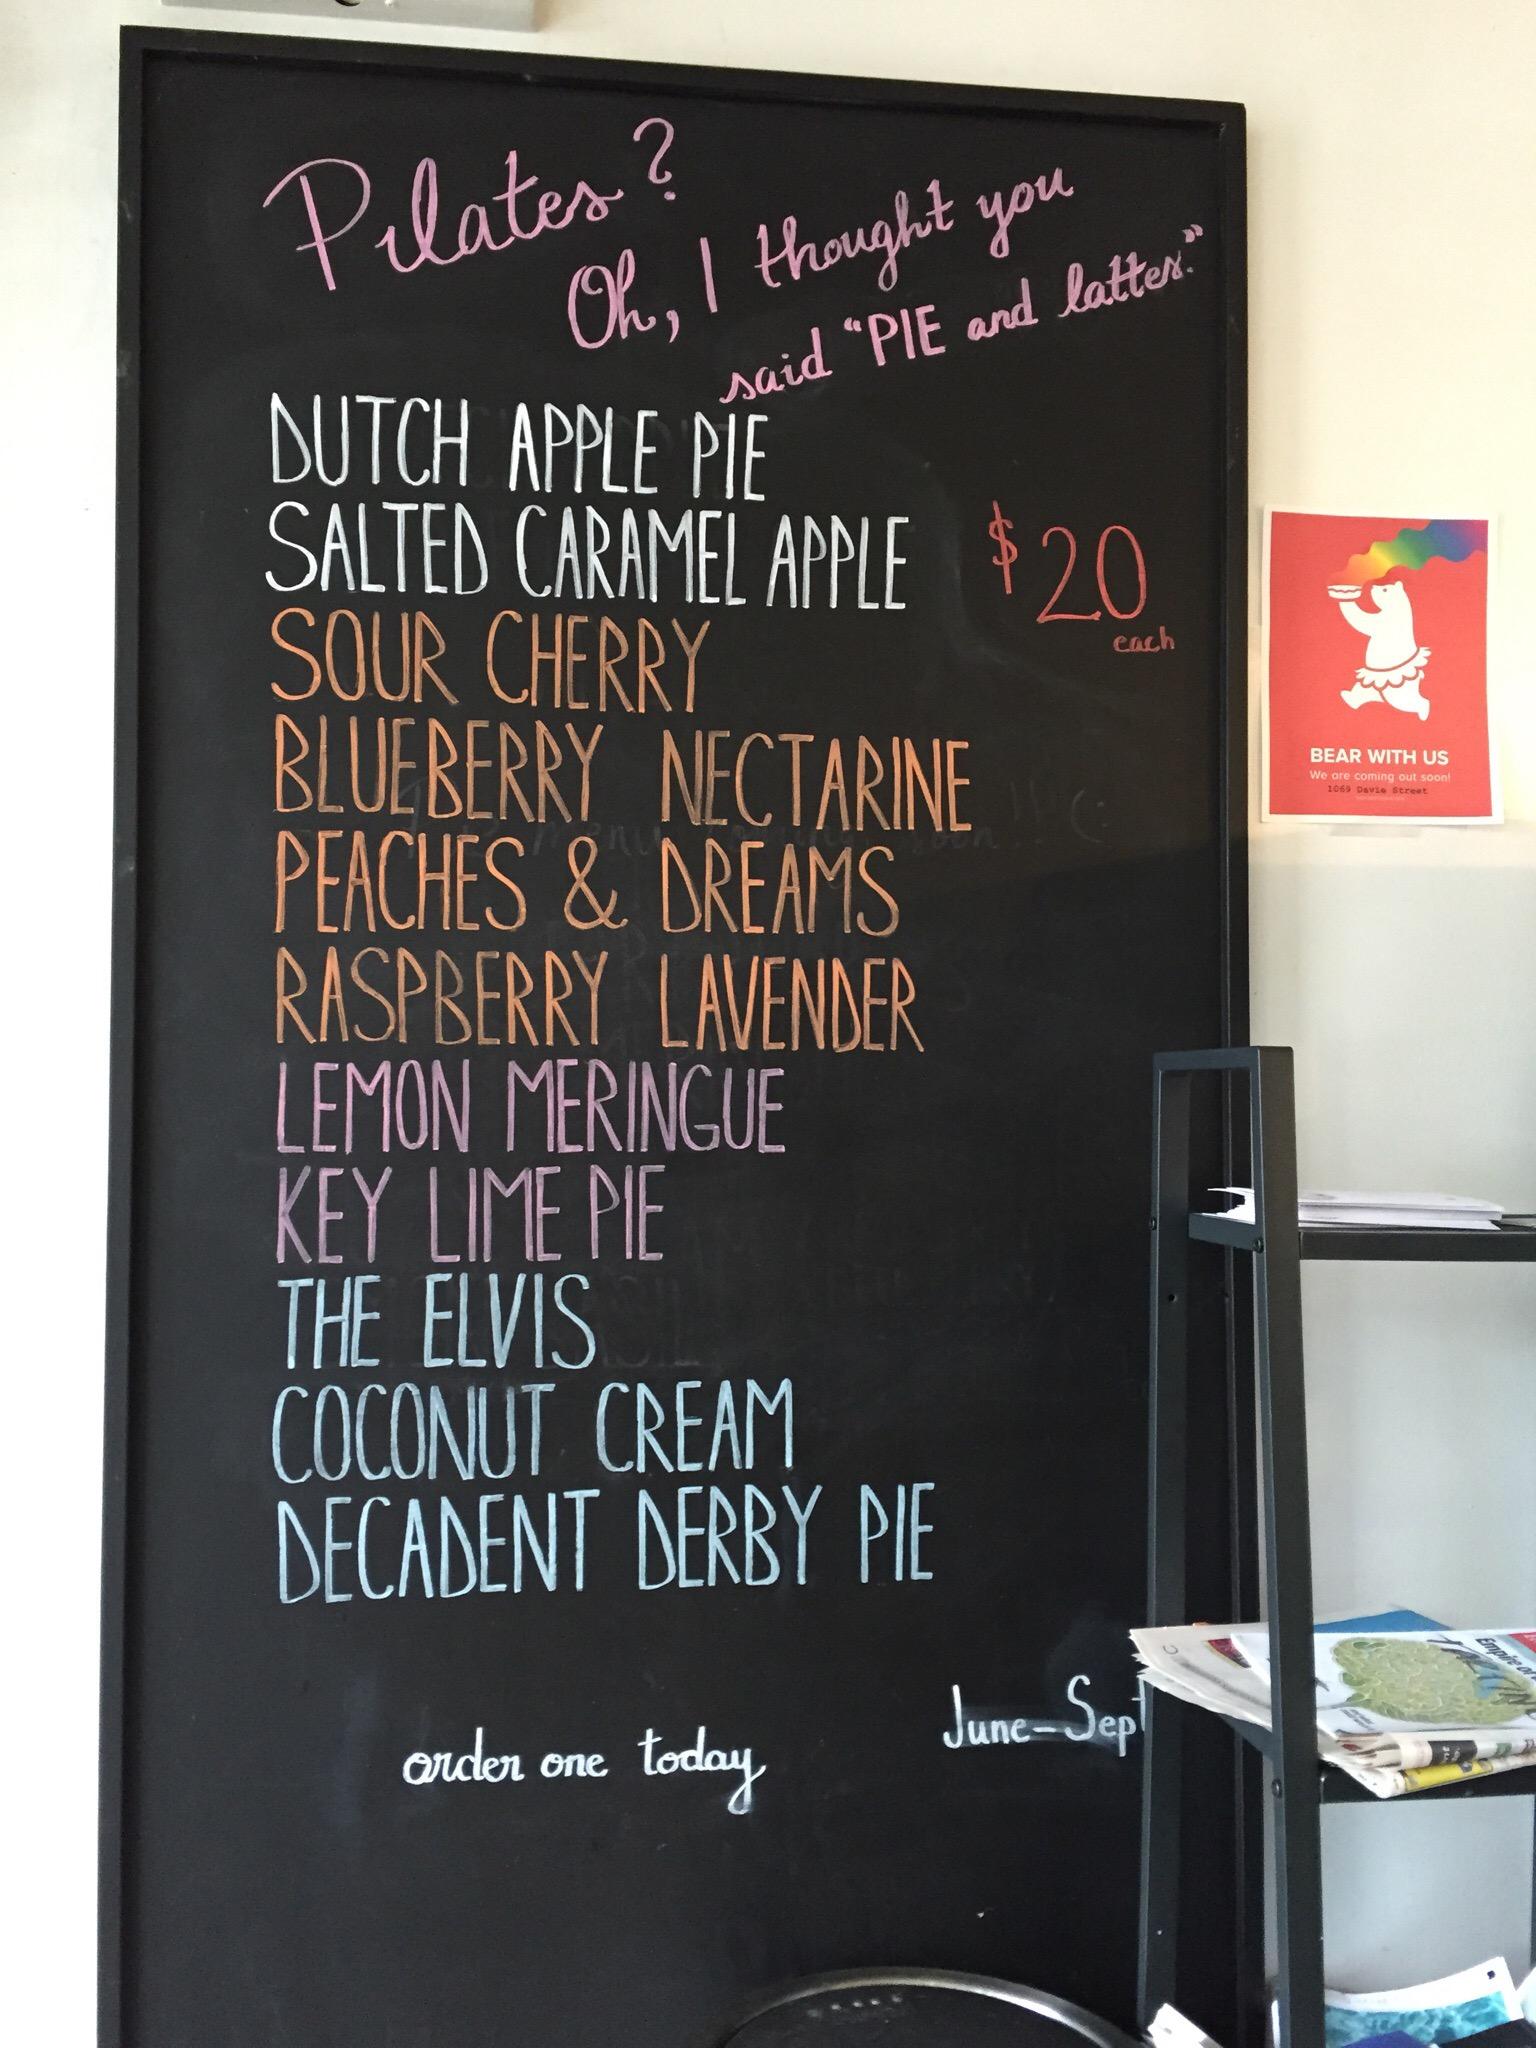 Pilates?
Oh, I thought you
said "PIE and lattes."
DUTCH APPLE PIE
SALTED CARAMEL APPLE
$20
each
SOUR CHERRY
BLUEBERRY NECTARINE
PEACHES & DREAMS
RASPBERRY LAVENDER
LEMON MERINGUE
KEY LIME PIE
THE ELVIS
COCONUT CREAM
DECADENT DERBY PIE
June-Sept
order one today
BEAR WITH US
We are coming out soon!
1069 Davie Street
Empire of